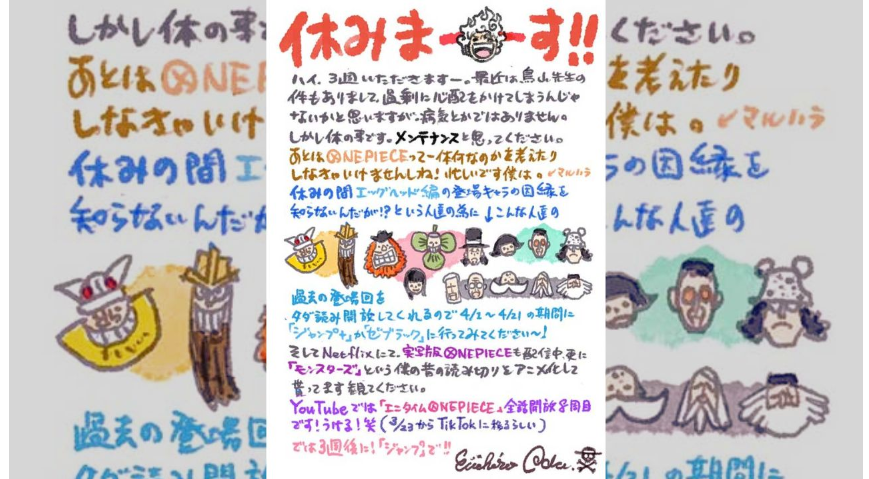 休みまーす!!
ハイ、3週いただきますー。最近は鳥山先生の
件もありまして、過剰に心配をかけてしまうんじゃ
ないかと思いますが、病気とかではありません。
しかし体の事です。メンテナンスと思ってください。
あとはONEPIECEって一体何なのかを考えたり
しなきゃいけませんしね!忙しいです僕は。✓マルハラ
休みの間エッグヘッド編の登場キャラの因縁を
知らないんだが!?という人達の為に↓こんな人達の
過去の登場回を
タダ読み開放してくれるので4/2〜4/21の期間に
「ジャンプ+」か「ゼブラック」に行ってみてください〜!
そしてNetflixにて、実写版ONEPIECEも配信中、更に
「モンスターズ」という僕の昔の読み切りをアニメ化して
貰ってます観てください。
YouTubeでは「エニタイムONEPIECE」全話開放8周目
です!うける!笑(3/23からTikTokに移るらしい)
では3週後に!「ジャンプ」で!!
Eiichiro Oda.
しかし体の事
あとはONEP
しなきゃいけ
休みの間エ
知らないんだが
過去の登場回
タダ読み開
ください。
を考えたり
僕は。✓マルハラ
ラの因縁を
んな人達の
/21の期間に